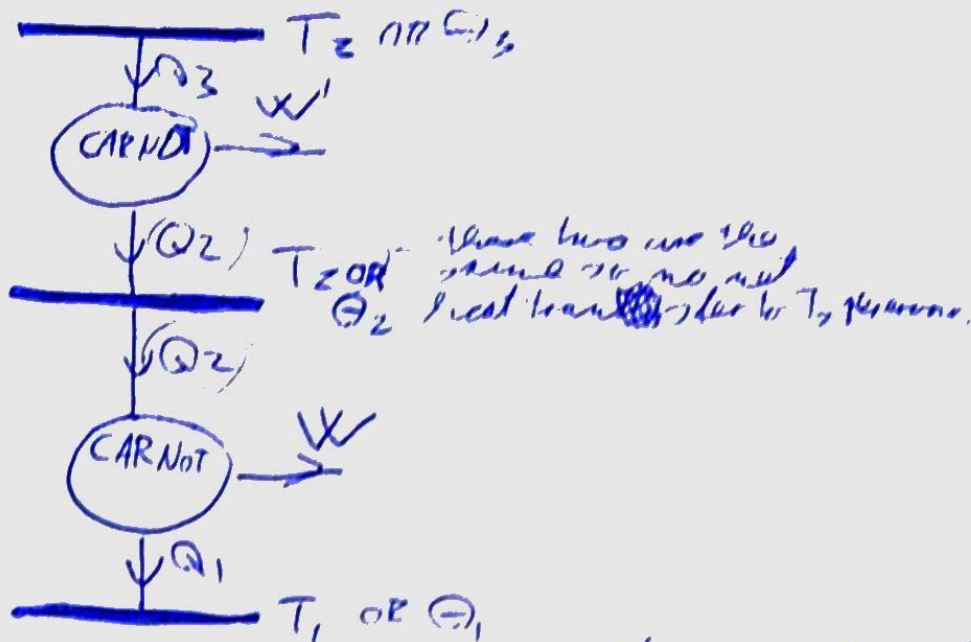 T2 OR Θ3
Q3
W'
CARNOT
(Q2)
T2 OR these two are the
same so no net
Θ2 heat transfer to T2 reservoir.
(Q2)
CARNOT
W
Q1
T1 OR Θ1